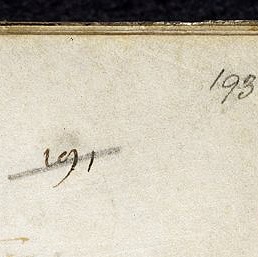 193
191